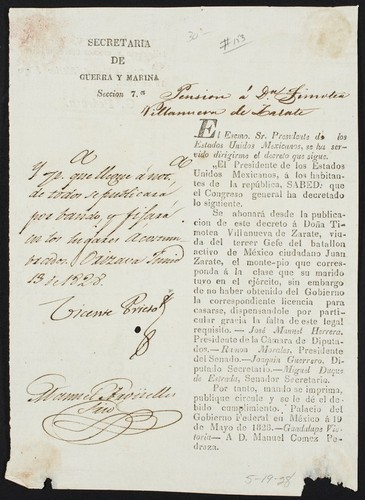 SECRETARIA
DE
GUERRA Y MARINA
Seccion 7.a
#153
Pension á Dña Timotea
Villanueva de Zarate
El Escmo. Sr. Presidente de los
Estados Unidos Mexicanos, se ha ser
vido dirigirme el decreto que sigue.
„El Presidente de los Estados
Unidos Mexicanos, á los habitantes
de la república, SABED: que
el Congreso general ha decretado
lo siguiente.
Se abonará desde la publicacion
de este decreto á Doña Timotea
Villanueva de Zarate, viuda
del tercer Gefe del batallon
activo de México ciudadano Juan
Zarate, el monte-pio que corresponda
á la clase que su marido
tuvo en el ejército, sin embargo
de no haber obtenido del Gobierno
la correspondiente licencia para
casarse, dispensandole por particular
gracia la falta de este legal
requisito.—José Manuel Herrera,
Presidente de la Cámara de Diputados.—
Morales, Presidente
del Senado.—Joaquin Guerrero, Diputado
Secretario.—Miguel Duque
de Estrada, Senador Secretario.
Por tanto, mando se imprima,
publique circule y se le dé el debido
cumplimiento. Palacio del
Gobierno Federal en México á 19
de Mayo de 1828.—Guadalupe Victoria.—
A D. Manuel Gomez Pedraza.
Y pa. que llegue á not.
de todos se publicará
por bando, y fijará
en los lugares Acostumbrados.
Orizava Junio
13 de 1828.
Vicente Prieto
Manuel
Srio
5-19-28